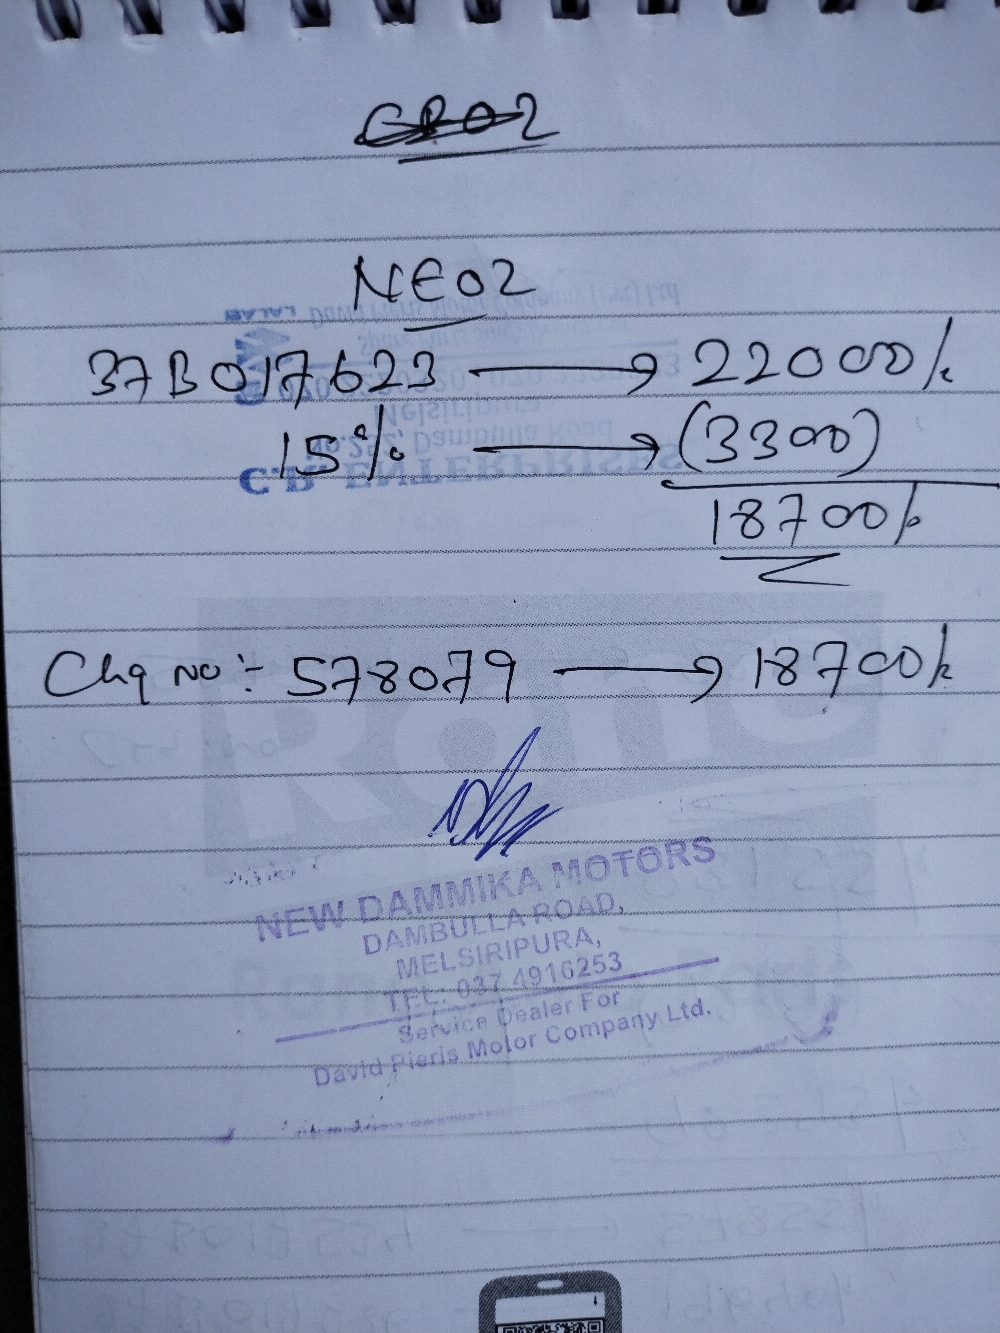 NE02
37B017623 → 22000/-
15% → (3300)
18700/-
Chq No :- 578079 → 18700/-
NEW DAMMIKA MOTORS
DAMBULLA ROAD,
MELSIRIPURA,
TEL: 037 4916253
Service Dealer For
David Pieris Motor Company Ltd.